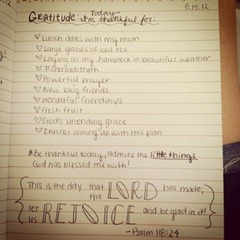 8.15.12
Today
Gratitude: I'm thankful for:
♡Lunch dates with my mom
♡Large glasses of iced tea
♡Laying on my hammock in beautiful weather
♡#SharadisTruth
♡Powerful prayer
♡New blog friends
♡Wonderful friendships
♡Fresh fruit
♡God's unending grace
♡Erin for coming up with this plan
*Be thankful today, admire the little things
God has blessed me with!
This is the day that the LORD has made,
let us REJOICE and be glad in it!
-Psalm 118:24